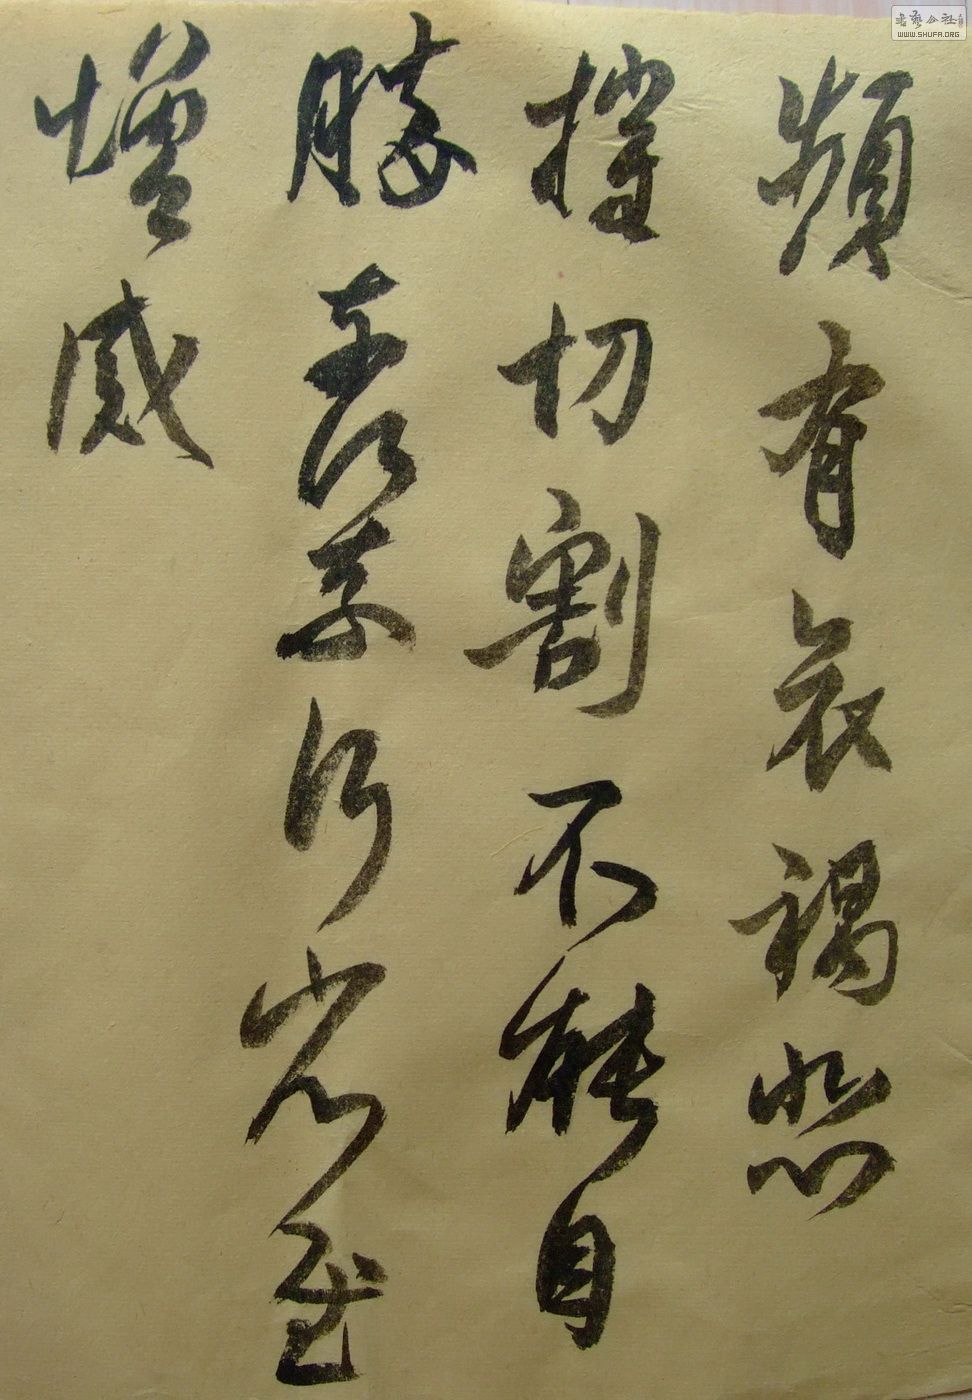 頻有哀禍悲
摧切割不能自
勝奈何奈何省慰
增感
書藝公社
WWW.SHUFA.ORG